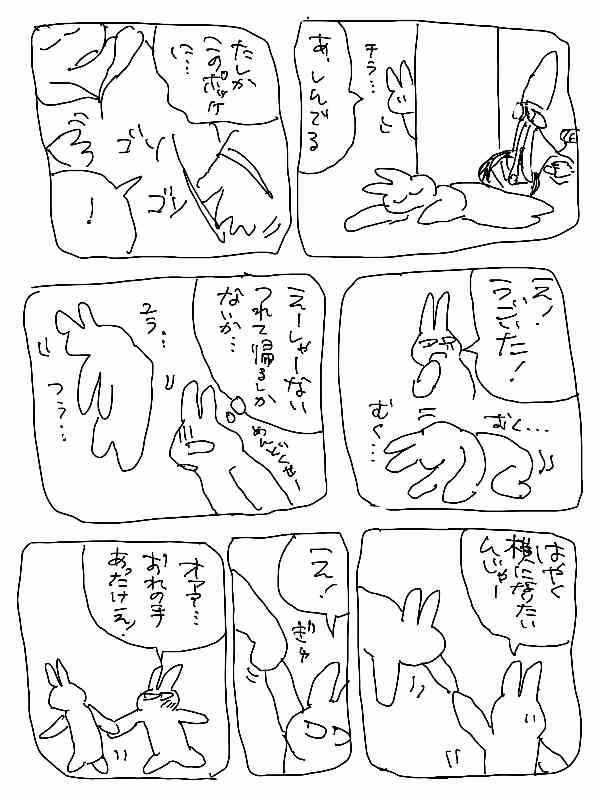 チラ…
あ、しんでる
たしか
このポッケ
に…
ゴソ
ゴソ
！
えっ！
うごいた！
むく…
むく…
えーしゃーない
つれて帰るしか
ないか…
めんどしゃー
ううっ…
うう…
はやく
横になりたい
んじゃー
え！
ぎゅ
オアア…
おれの手
あったけえ！